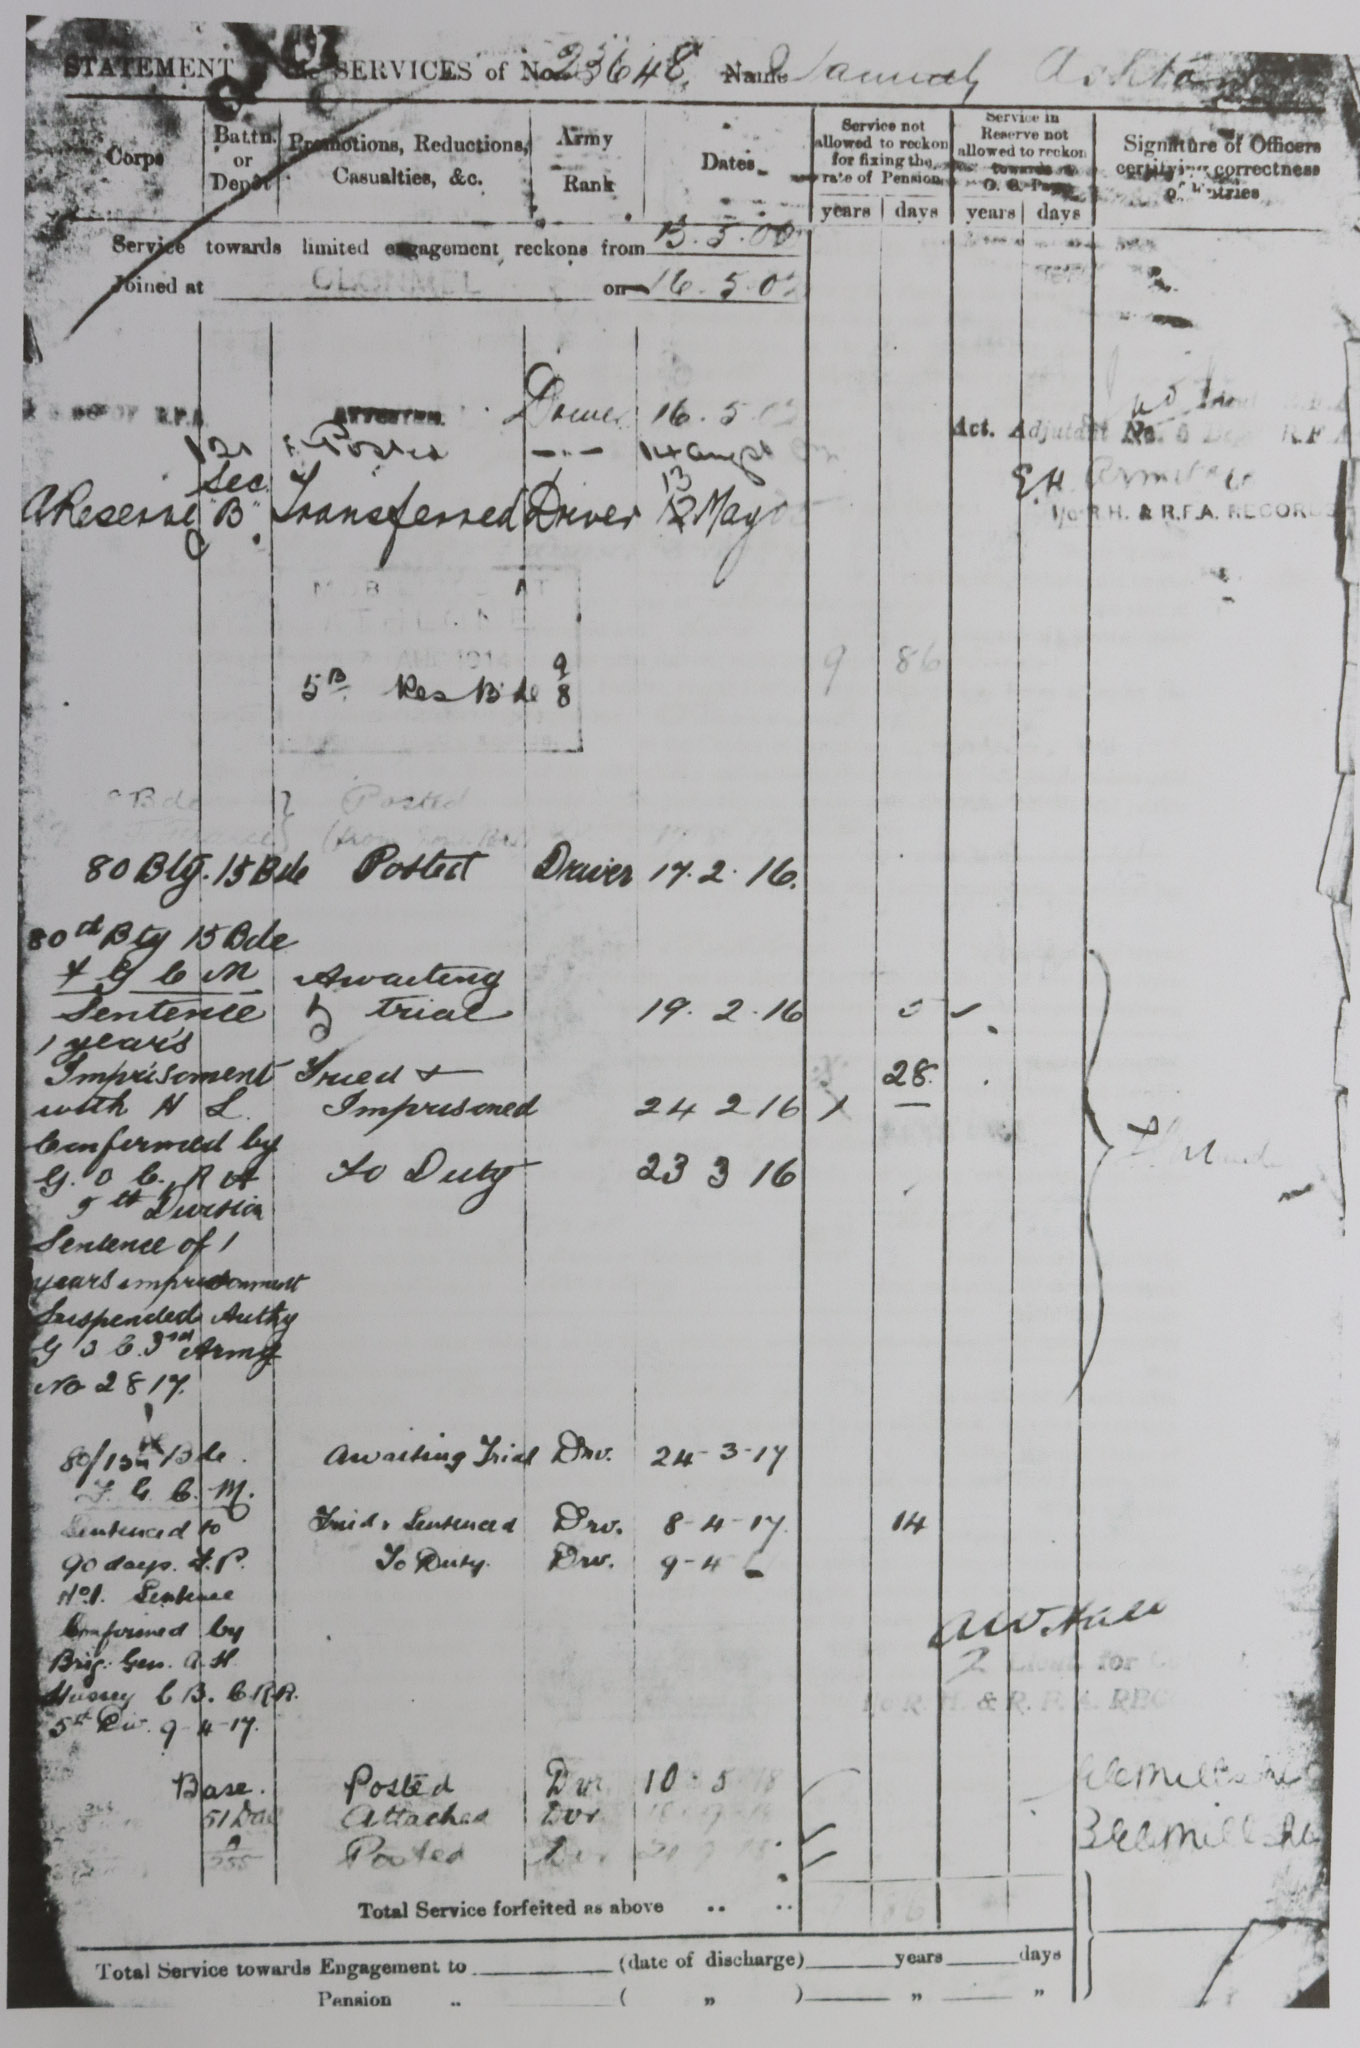 STATEMENT of the SERVICES of No. 23648 Name Samuel Ashton
Corps
Battn. or Depôt
Promotions, Reductions, Casualties, &c.
Army Rank
Dates
Service not allowed to reckon for fixing the rate of Pension
Service in Reserve not allowed to reckon towards G. C. Pay
Signature of Officers certifying correctness of Entries
years days years days
Service towards limited engagement reckons from 13.5.02
Joined at CLONMEL on 16.5.02
R.F.A. ATTESTED. Driver 16.5.02
Act. Adjutant No. Depôt R.F.A.
121 Posted 14 Augt
A Reserve Sec "B" Transferred Driver 13 May
I/c R.H. & R.F.A. RECORDS
AT
ATHLONE
AUG 1914
9 86
5B Res Bde 9/8
Bde } Posted
80 Bty. 15 Bde Posted Driver 17.2.16.
80th Bty 15 Bde
F G C M Awaiting
Sentence trial 19.2.16 5
1 year's
Imprisoment Tried + 28
with H L. Imprisoned 24 2 16
Confirmed by
G.O.C. R A To Duty 23 3 16
5th Division
Sentence of 1
years imprisonment
Suspended Authy
G O C. 3rd Army
No 2817.
80/15th Bde. Awaiting Trial Drv. 24-3-17
F. G. C. M.
Sentenced to Tried & Sentenced Drv. 8-4-17. 14
90 days. F.P. To Duty. Drv. 9-4
No 1. Sentence
Confirmed by
Brig: Gen. A. H.
Hussey C B. C R A.
5th Div. 9-4-17.
A W Hill
2 Lieut. for
I/c R. H. & R. F. A. REC
Base. Posted Dvr 10 5 18
51 DAC Attached Dvr
A/255 Posted Dvr
Total Service forfeited as above .. ..
Total Service towards Engagement to (date of discharge) years days
Pension .. ( „ ) „ „